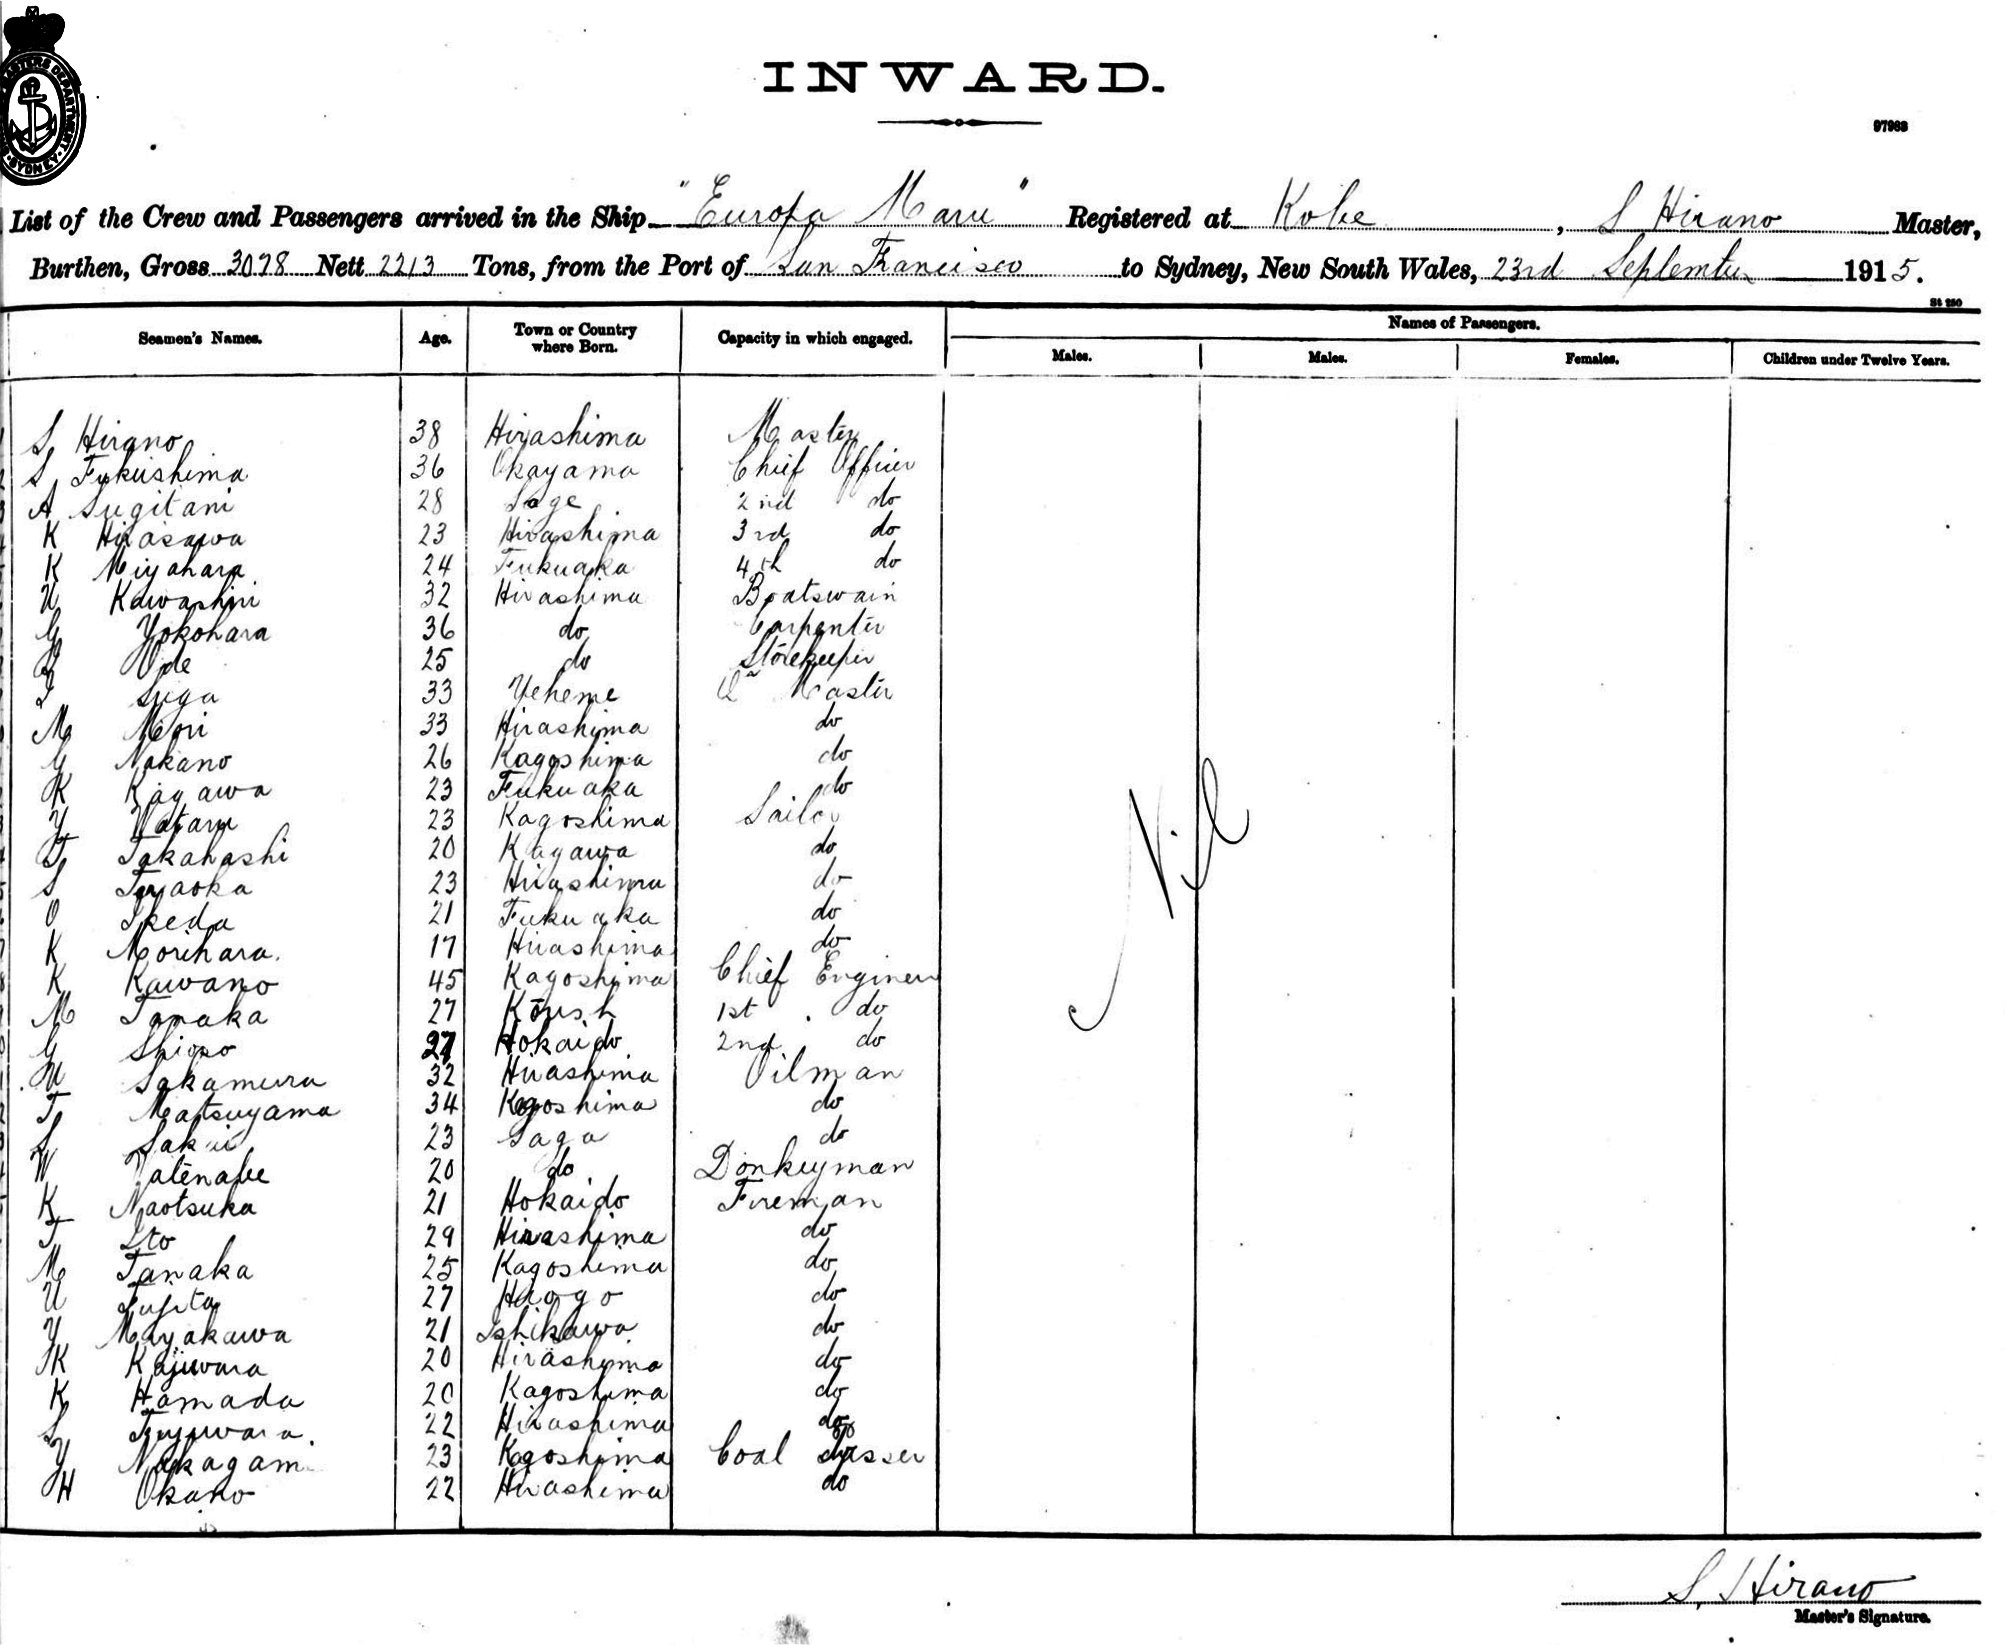 MASTERS DEPARTMENT
SYDNEY
INWARD.
97983
List of the Crew and Passengers arrived in the Ship "Europa Maru" Registered at Kobe, S Hirano Master,
Burthen, Gross 3078 Nett 2213 Tons, from the Port of San Francisco to Sydney, New South Wales, 23rd September 1915.
St 250
Seamen's Names. Age. Town or Country where Born. Capacity in which engaged. Names of Passengers.
Males. Males. Females. Children under Twelve Years.
S Hirano 38 Hirashima Master
S Fukushima 36 Okayama Chief Officer
A Sugitani 28 Sage 2nd do
K Hirasawa 23 Hirashima 3rd do
K Miyahara 24 Fukuaka 4th do
U Kawashiri 32 Hirashima Boatswain
G Yokohara 36 do Carpenter
Ode 25 do Storekeeper
Suga 33 Yeheme Qr Master
M Mori 33 Hirashima do
G Nakano 26 Kagoshima do
K Kagawa 23 Fukuaka do
Y Wataru 23 Kagoshima Sailor
T Takahashi 20 Kagawa do
S Teraoka 23 Hirashima do
O Ikeda 21 Fukuaka do
K Morihara. 17 Hirashima do
K Kawano 45 Kagoshima Chief Engineer
M Tanaka 27 1st do
G 27 Hokaido 2nd do
U Sakamura 32 Hirashima Oilman
T Matsuyama 34 Kagoshima do
S Sakai 23 Saga do
W Watenabe 20 do Donkeyman
K Naotsuka 21 Hokaido Fireman
T Ito 29 Hirashima do
M Tanaka 25 Kagoshima do
U Fujita 27 Hiogo do
Y Mayakawa 21 Ishikawa do
K Kajiwara 20 Hirashima do
K Hamada 20 Kagoshima do
S Fujiwara. 22 Hirashima do
Y Nakagami 23 Kagoshima Coal Passer
H Okano 22 Hirashima do
Nil
S. Hirano
Master's Signature.